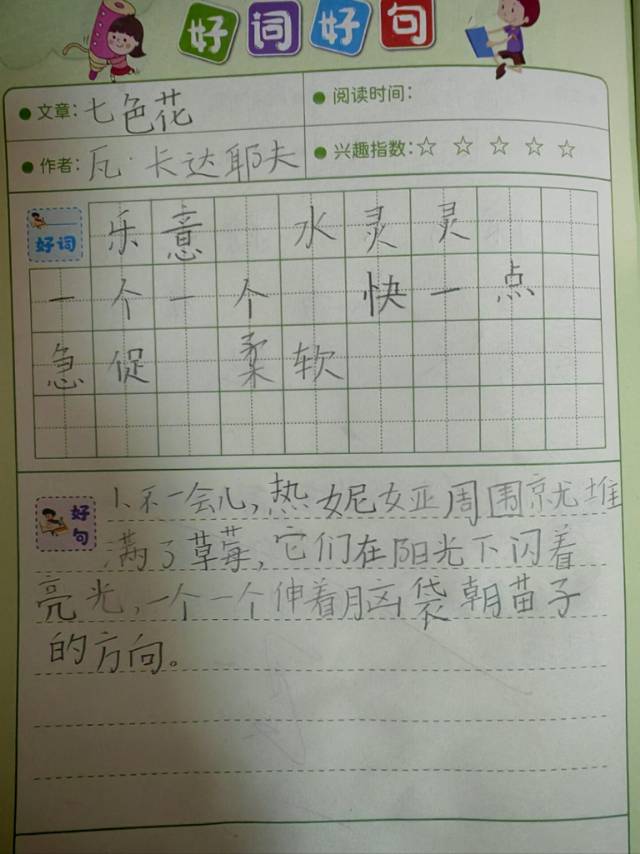 好词好句
文章：七色花
阅读时间：
作者：瓦·卡达耶夫
兴趣指数：☆ ☆ ☆ ☆ ☆
好词
乐意 水灵灵
一个一个 快一点
急促 柔软
好句
1、不一会儿，热妮亚周围就堆
满了草莓，它们在阳光下闪着
亮光，一个一个伸着脑袋朝苗子
的方向。